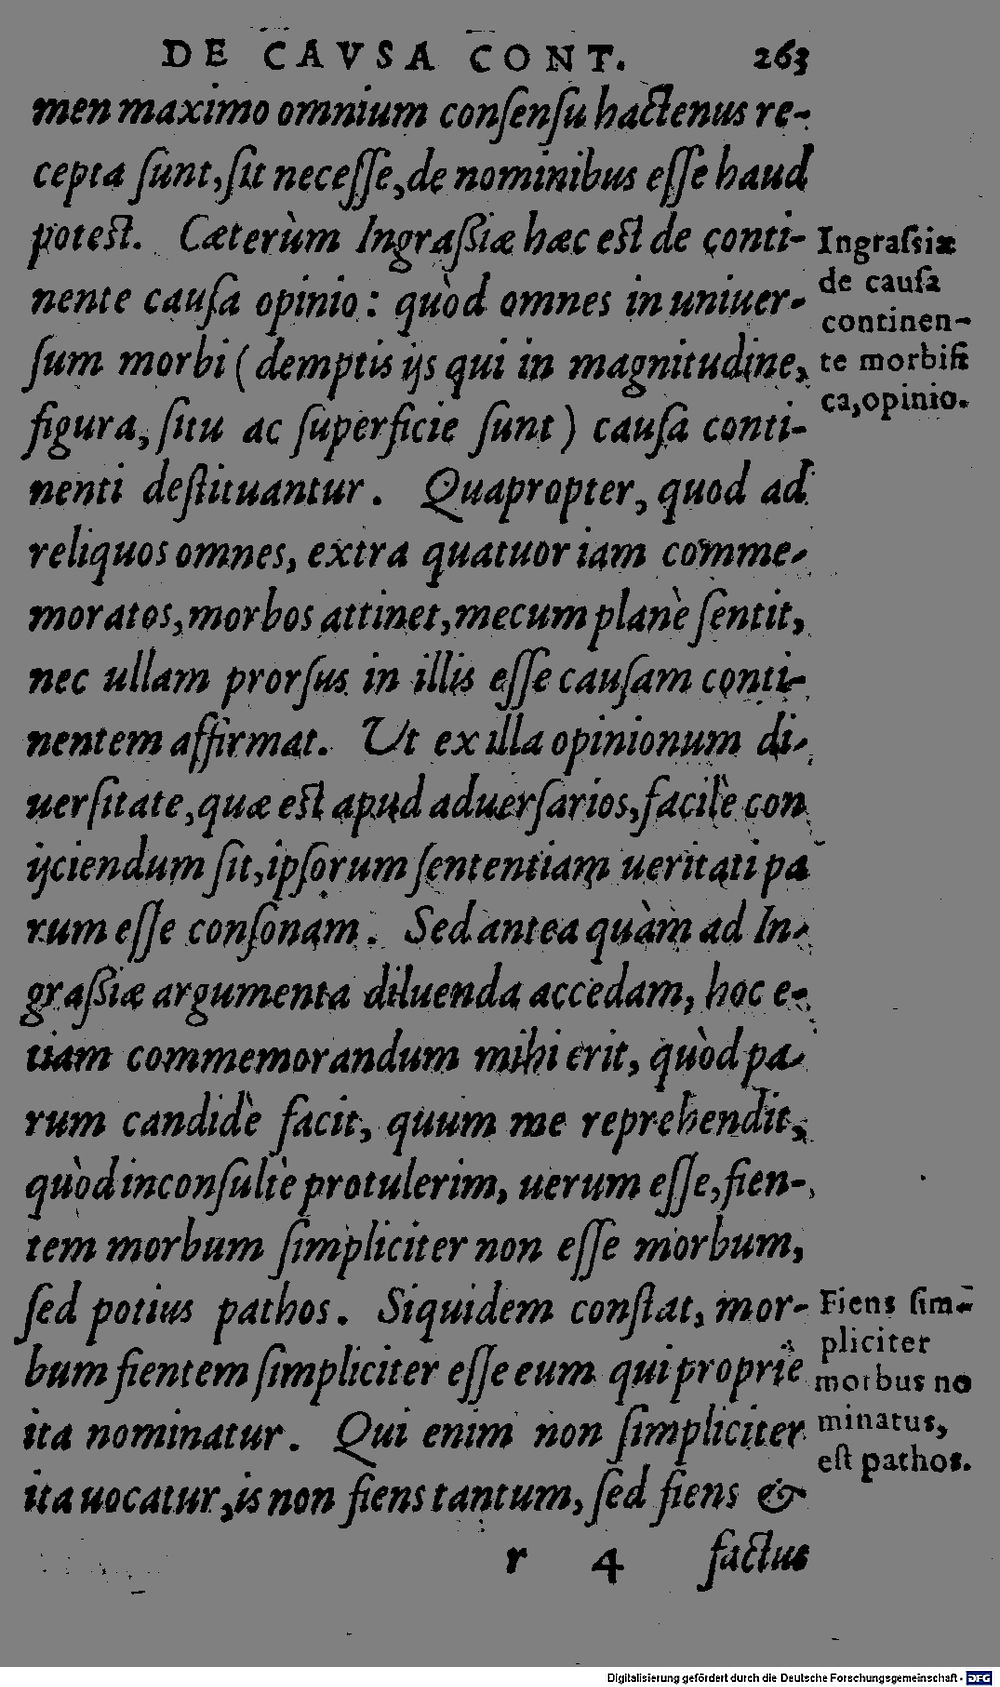 DE CAVSA CONT. 263
men maximo omnium conſenſu hactenus re-
cepta ſunt, ſit neceſſe, de nominibus eſſe haud
potest. Cæterùm Ingraßiæ hæc est de conti-
nente cauſa opinio: quòd omnes in uniuer-
ſum morbi (demptis ijs qui in magnitudine,
figura, ſitu ac ſuperficie ſunt) cauſa conti-
nenti deſtituantur. Quapropter, quod ad
reliquos omnes, extra quatuor iam comme-
moratos, morbos attinet, mecum planè ſentit,
nec ullam prorſus in illis eſſe cauſam conti-
nentem affirmat. Ut ex illa opinionum di-
uerſitate, quæ est apud aduerſarios, facilè con
ijciendum ſit, ipſorum ſententiam ueritati pa
rum eſſe conſonam. Sed antea quàm ad In-
graßiæ argumenta diluenda accedam, hoc e-
tiam commemorandum mihi erit, quòd pa-
rum candidè facit, quum me reprehendit,
quòd inconſultè protulerim, uerum eſſe, fien-
tem morbum ſimpliciter non eſſe morbum,
ſed potius pathos. Siquidem conſtat, mor-
bum fientem ſimpliciter eſſe eum qui proprie
ita nominatur. Qui enim non ſimpliciter
ita uocatur, is non fiens tantum, ſed fiens &
r 4 factus
Ingraſsiæ
de cauſa
continen-
te morbifi
ca, opinio.
Fiens ſim-
pliciter
morbus no
minatus,
eſt pathos.
Digitalisierung gefördert durch die Deutsche Forschungsgemeinschaft - DFG